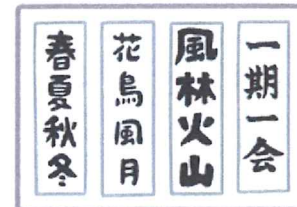 一期一会
風林火山
花鳥風月
春夏秋冬